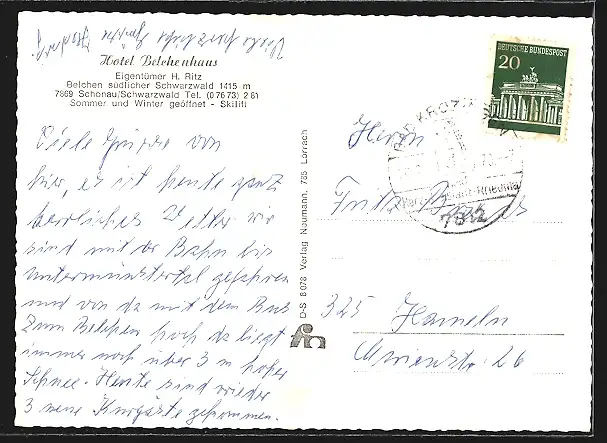 Viele herzliche Grüße
Hotel Belchenhaus
Eigentümer H. Ritz
Belchen südlicher Schwarzwald 1415 m
7869 Schönau/Schwarzwald Tel. (0 76 73) 2 81
Sommer und Winter geöffnet - Skilift
Viele Grüsse von
hier, es ist heute ganz
herrliches Wetter wir
sind mit der Bahn bis
Untermünstertal gefahren
und von da mit dem Bus
zum Belchen hoch da liegt
immer noch über 3 m hoher
Schnee. Heute sind wieder
3 neue Kurgäste gekommen.
D-S 8078 Verlag Neumann, 785 Lörrach
DEUTSCHE BUNDESPOST
20
BAD KROZINGEN
Rheuma
7812
Herrn
Fritz
325 Hameln
26